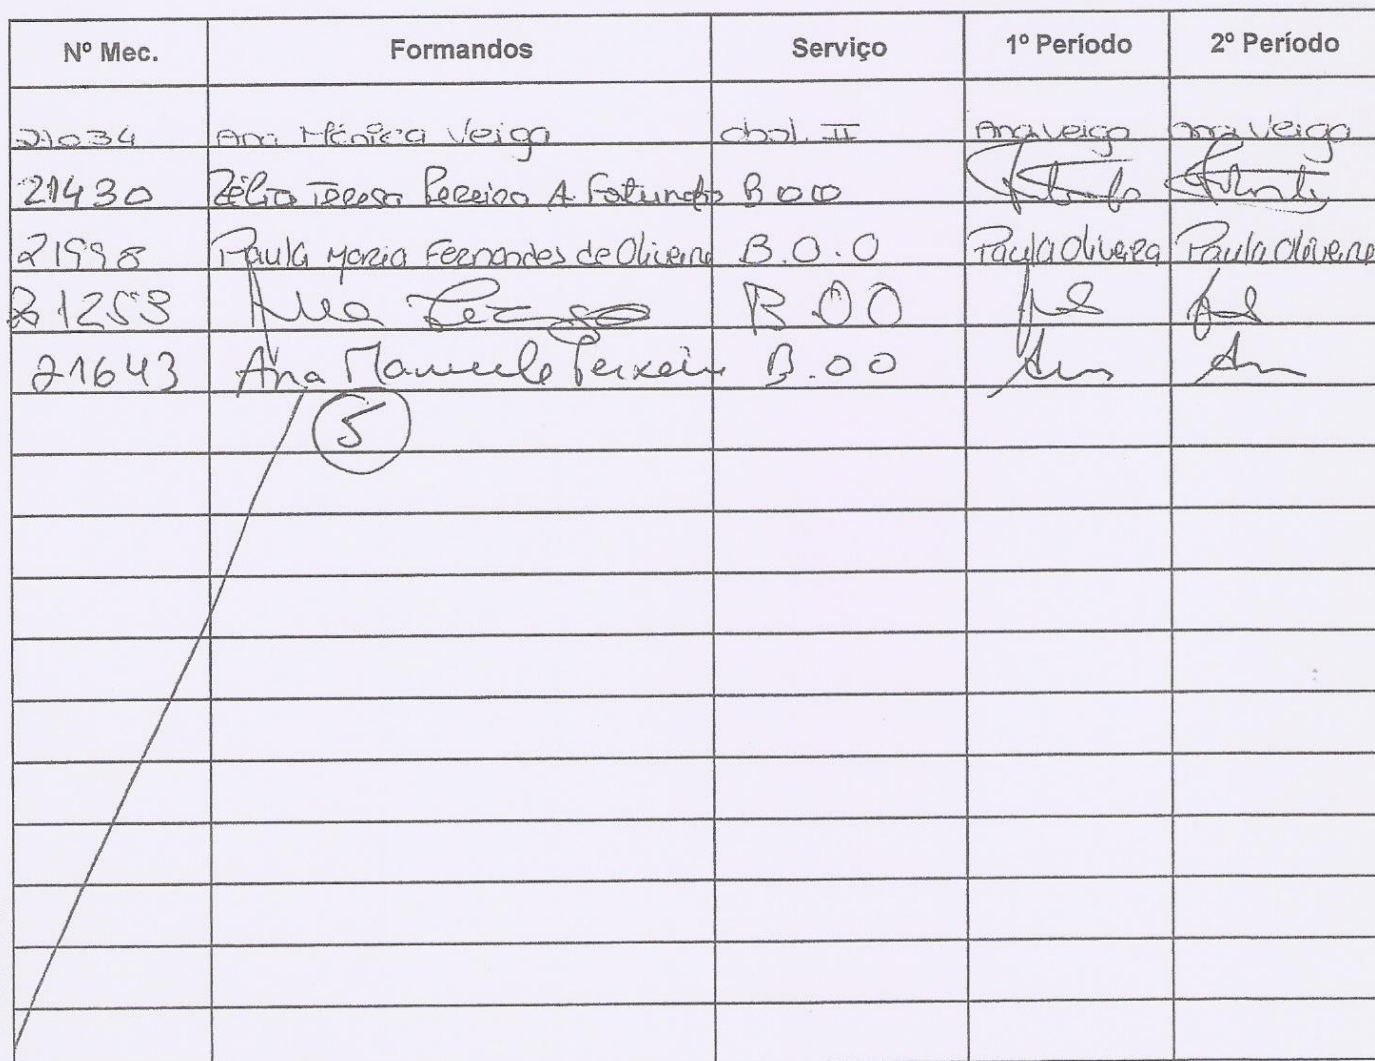 Nº Mec. Formandos Serviço 1º Período 2º Período
21034 Ana Mónica Veiga obol. II Ana Veiga Ana Veiga
21430 Zélia Teresa Pereira A. Fortunato B O O
21998 Paula Maria Fernandes de Oliveira B.O.O Paula Oliveira Paula Oliveira
21253 Ana B O O
21643 Ana Manuela Teixeira B.O O Ana Ana
5